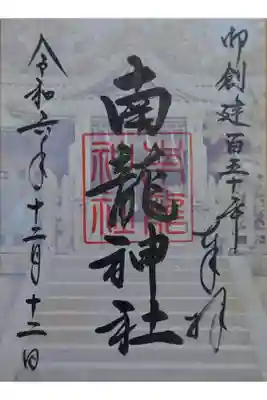 御創建百五十年
奉拝
南龍神社
令和六年十二月十二日